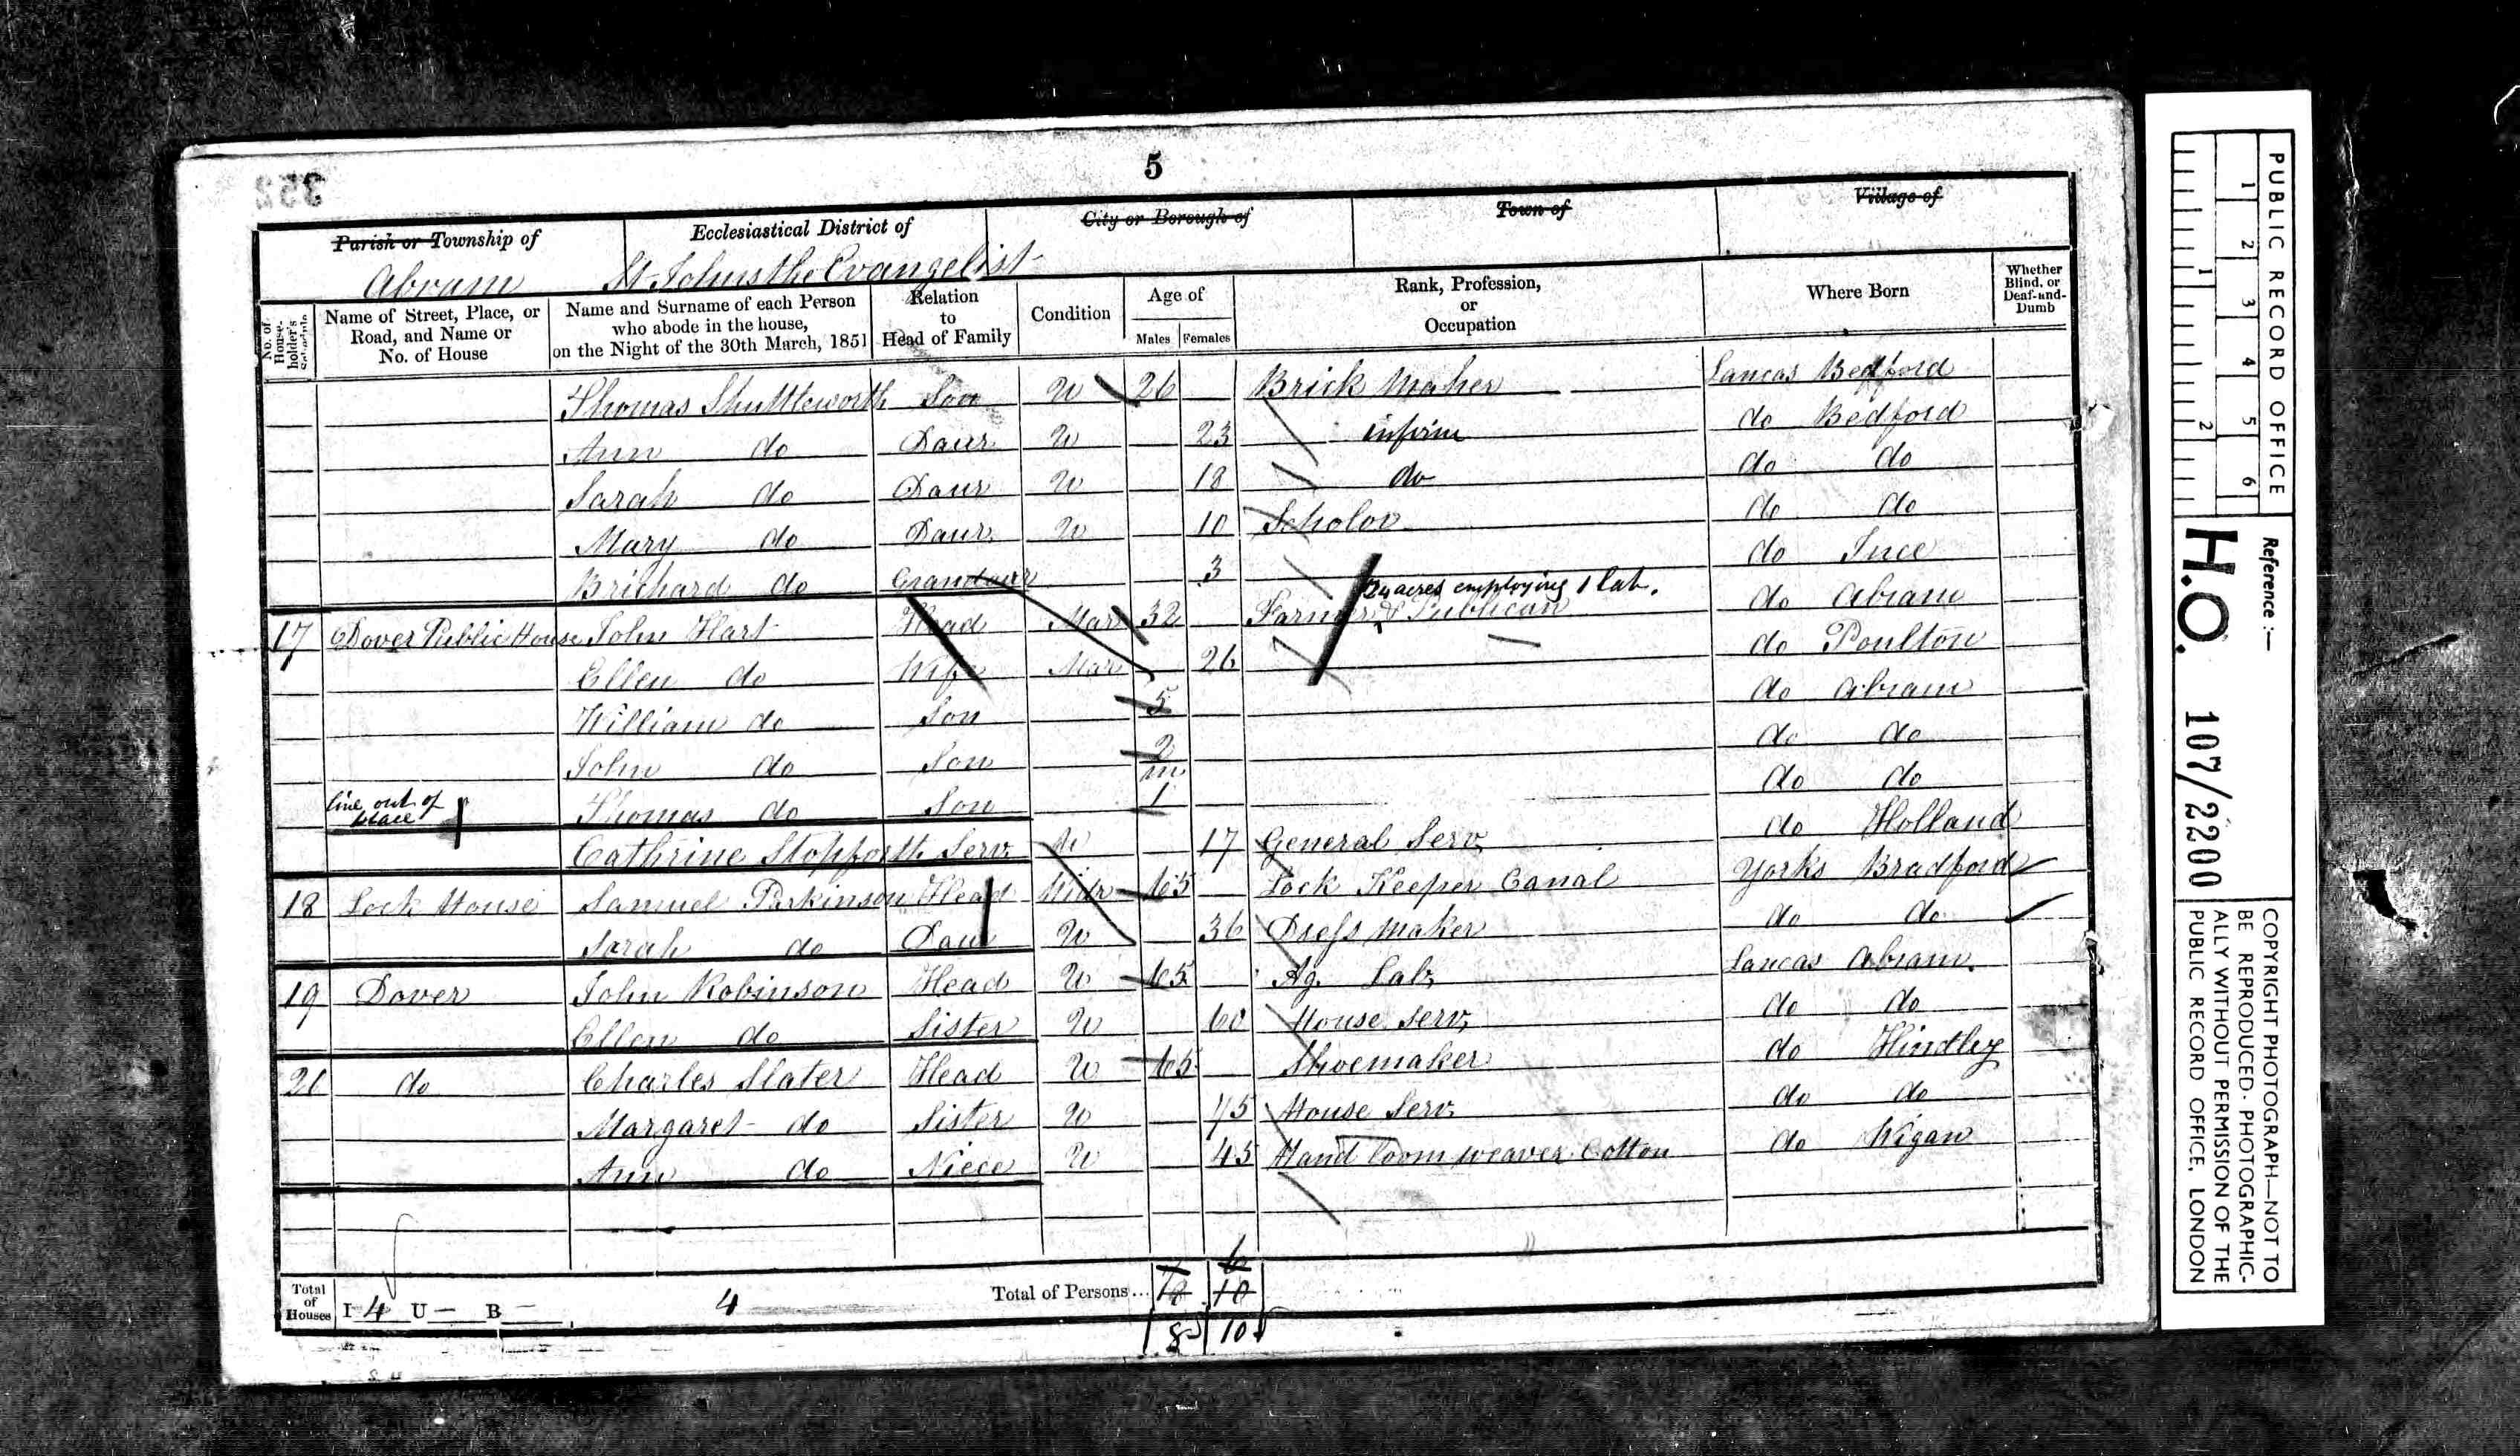 5
352
Parish or Township of
Ecclesiastical District of
City or Borough of
Town of
Village of
Abram
St Johns the Evangelist
No. of House-holder's Schedule
Name of Street, Place, or Road, and Name or No. of House
Name and Surname of each Person who abode in the house, on the Night of the 30th March, 1851
Relation to Head of Family
Condition
Age of
Males
Females
Rank, Profession, or Occupation
Where Born
Whether Blind, or Deaf-and-Dumb
Thomas Shuttleworth Son U 26 Brick Maker Lancas Bedford
Ann do Daur U 23 infirm do Bedford
Sarah do Daur U 18 do do do
Mary do Daur U 10 Scholar do do
do Grandaur 3 do Ince
24 acres employing 1 lab.
17 Dover Public House John Hart Head Mar 32 Farmer & Publican do Abram
Ellen do Wife Mar 26 do Poulton
William do Son 5 do Abram
John do Son 2 do do
line out of place
Thomas do Son m 1 do do
Cathrine Stopforth Serv U 17 General Serv do Holland
18 Lock House Samuel Parkinson Head Widr 65 Lock Keeper Canal Yorks Bradford
Sarah do Daur U 36 Dress maker do do
19 Dover John Robinson Head U 65 Ag. Lab. Lancas Abram
Ellen do Sister U 60 House Serv. do do
20 do Charles Slater Head U 65 Shoemaker do Hindley
Margaret do Sister U 75 House Serv. do do
Ann do Niece U 45 Hand loom weaver Cotton do Wigan
Total of Houses I 4 U — B — 4 Total of Persons... 10
8 10
PUBLIC RECORD OFFICE
1 2 3 4 5 6
1 2
Reference :—
H.O. 107/2200
COPYRIGHT PHOTOGRAPH—NOT TO BE REPRODUCED PHOTOGRAPHIC-ALLY WITHOUT PERMISSION OF THE PUBLIC RECORD OFFICE, LONDON